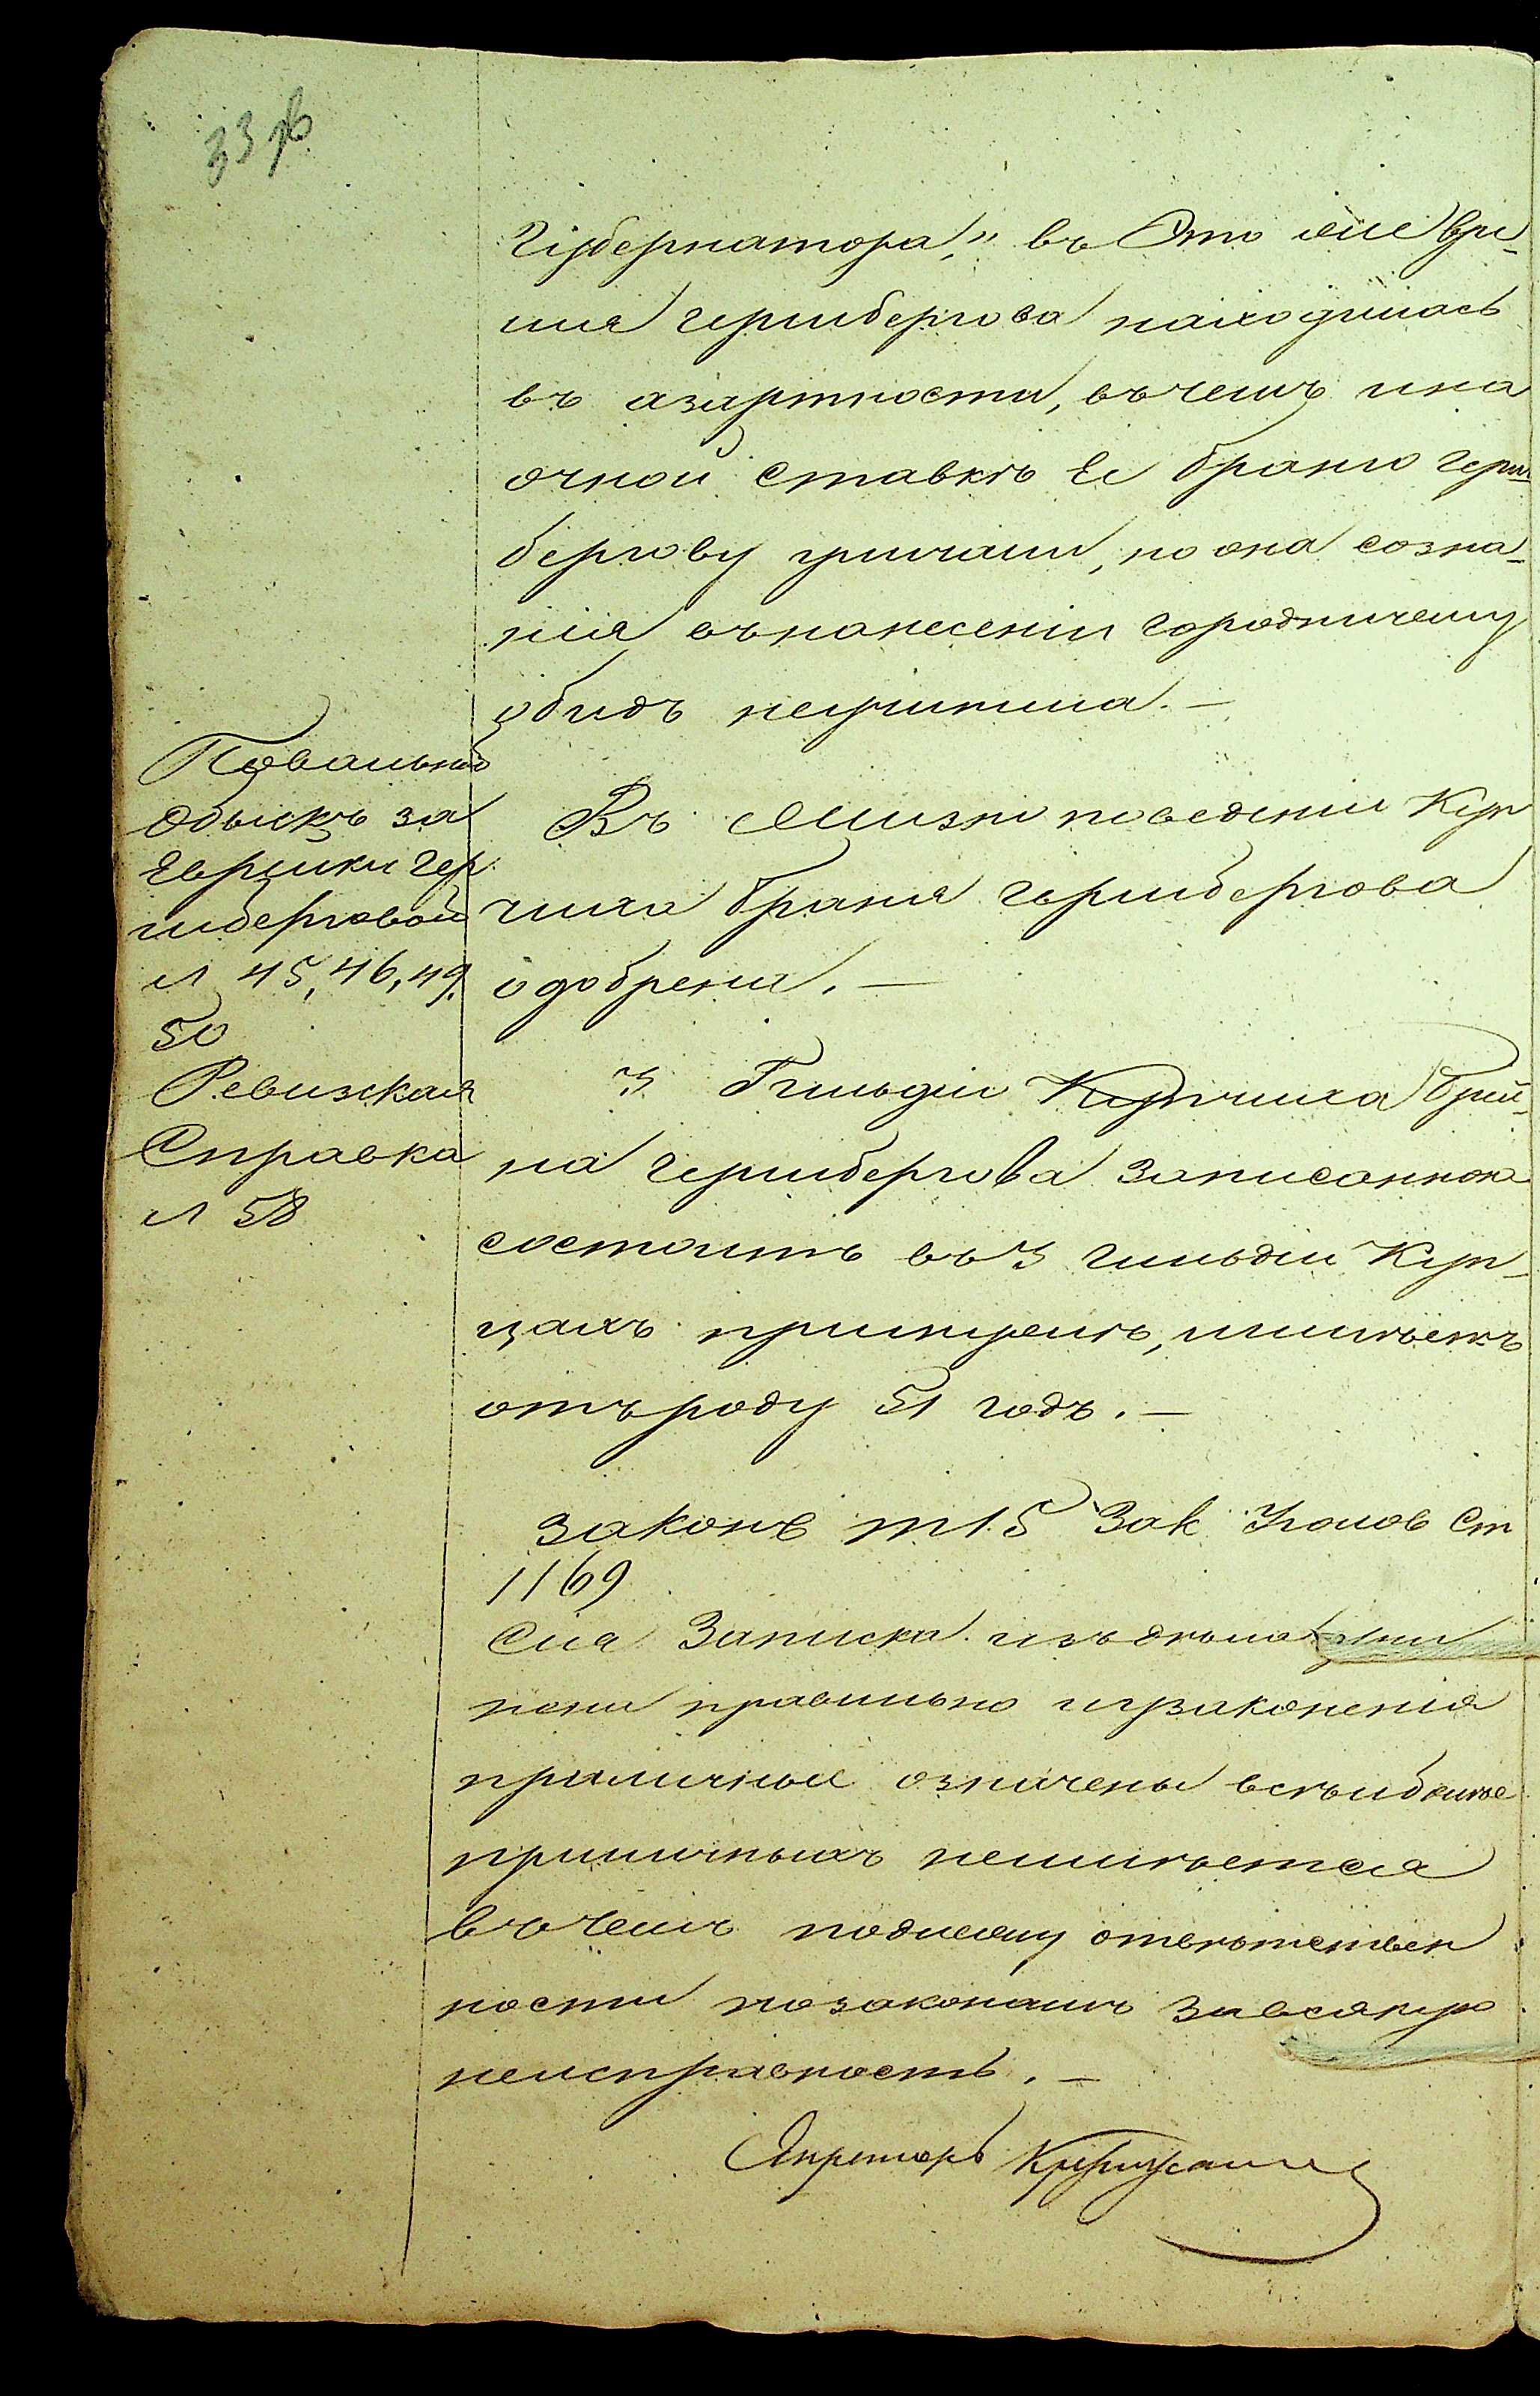 33 об
Губернатора," въ Это же вре-
мя Гершбергова находилась
въ азартности, въ чемъ и на
очной ставкѣ Ее Браню Герш-
бергову уличали, но она созна-
нія въ нанесеніи городничему
обидъ неучинила.—
Повальной
Обыскъ за
Еврейки Гер
шберговой
л 45, 46, 49,
50
Въ Жизни поведеніи Куп
чиха Браня Гершбергова
одобрена.—
Ревизская
Справка
л 58
3 Гильдіи Купчиха Брай-
на Гершбергова записанною
состоитъ въ 3 гильдіи Куп-
цахъ при мужѣ, имѣетъ
отъ роду 51 годъ.—
Законъ т 15 Зак Уголов Ст
1169
Сія Записка изъ дѣла
нена правильно и узаконенія
приличные означены всѣ и болѣе
приличныхъ неимѣется
въ чемъ подлежу отвѣтствен
ности по законамъ за всякую
неисправность.—
Секретарь